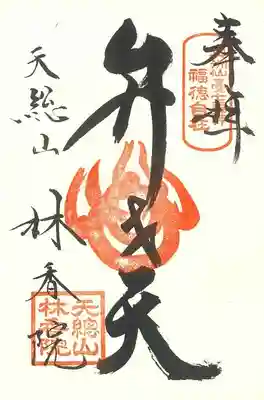 奉拝
福徳自在
弁才天
天總山
林香院
天總山
林香院